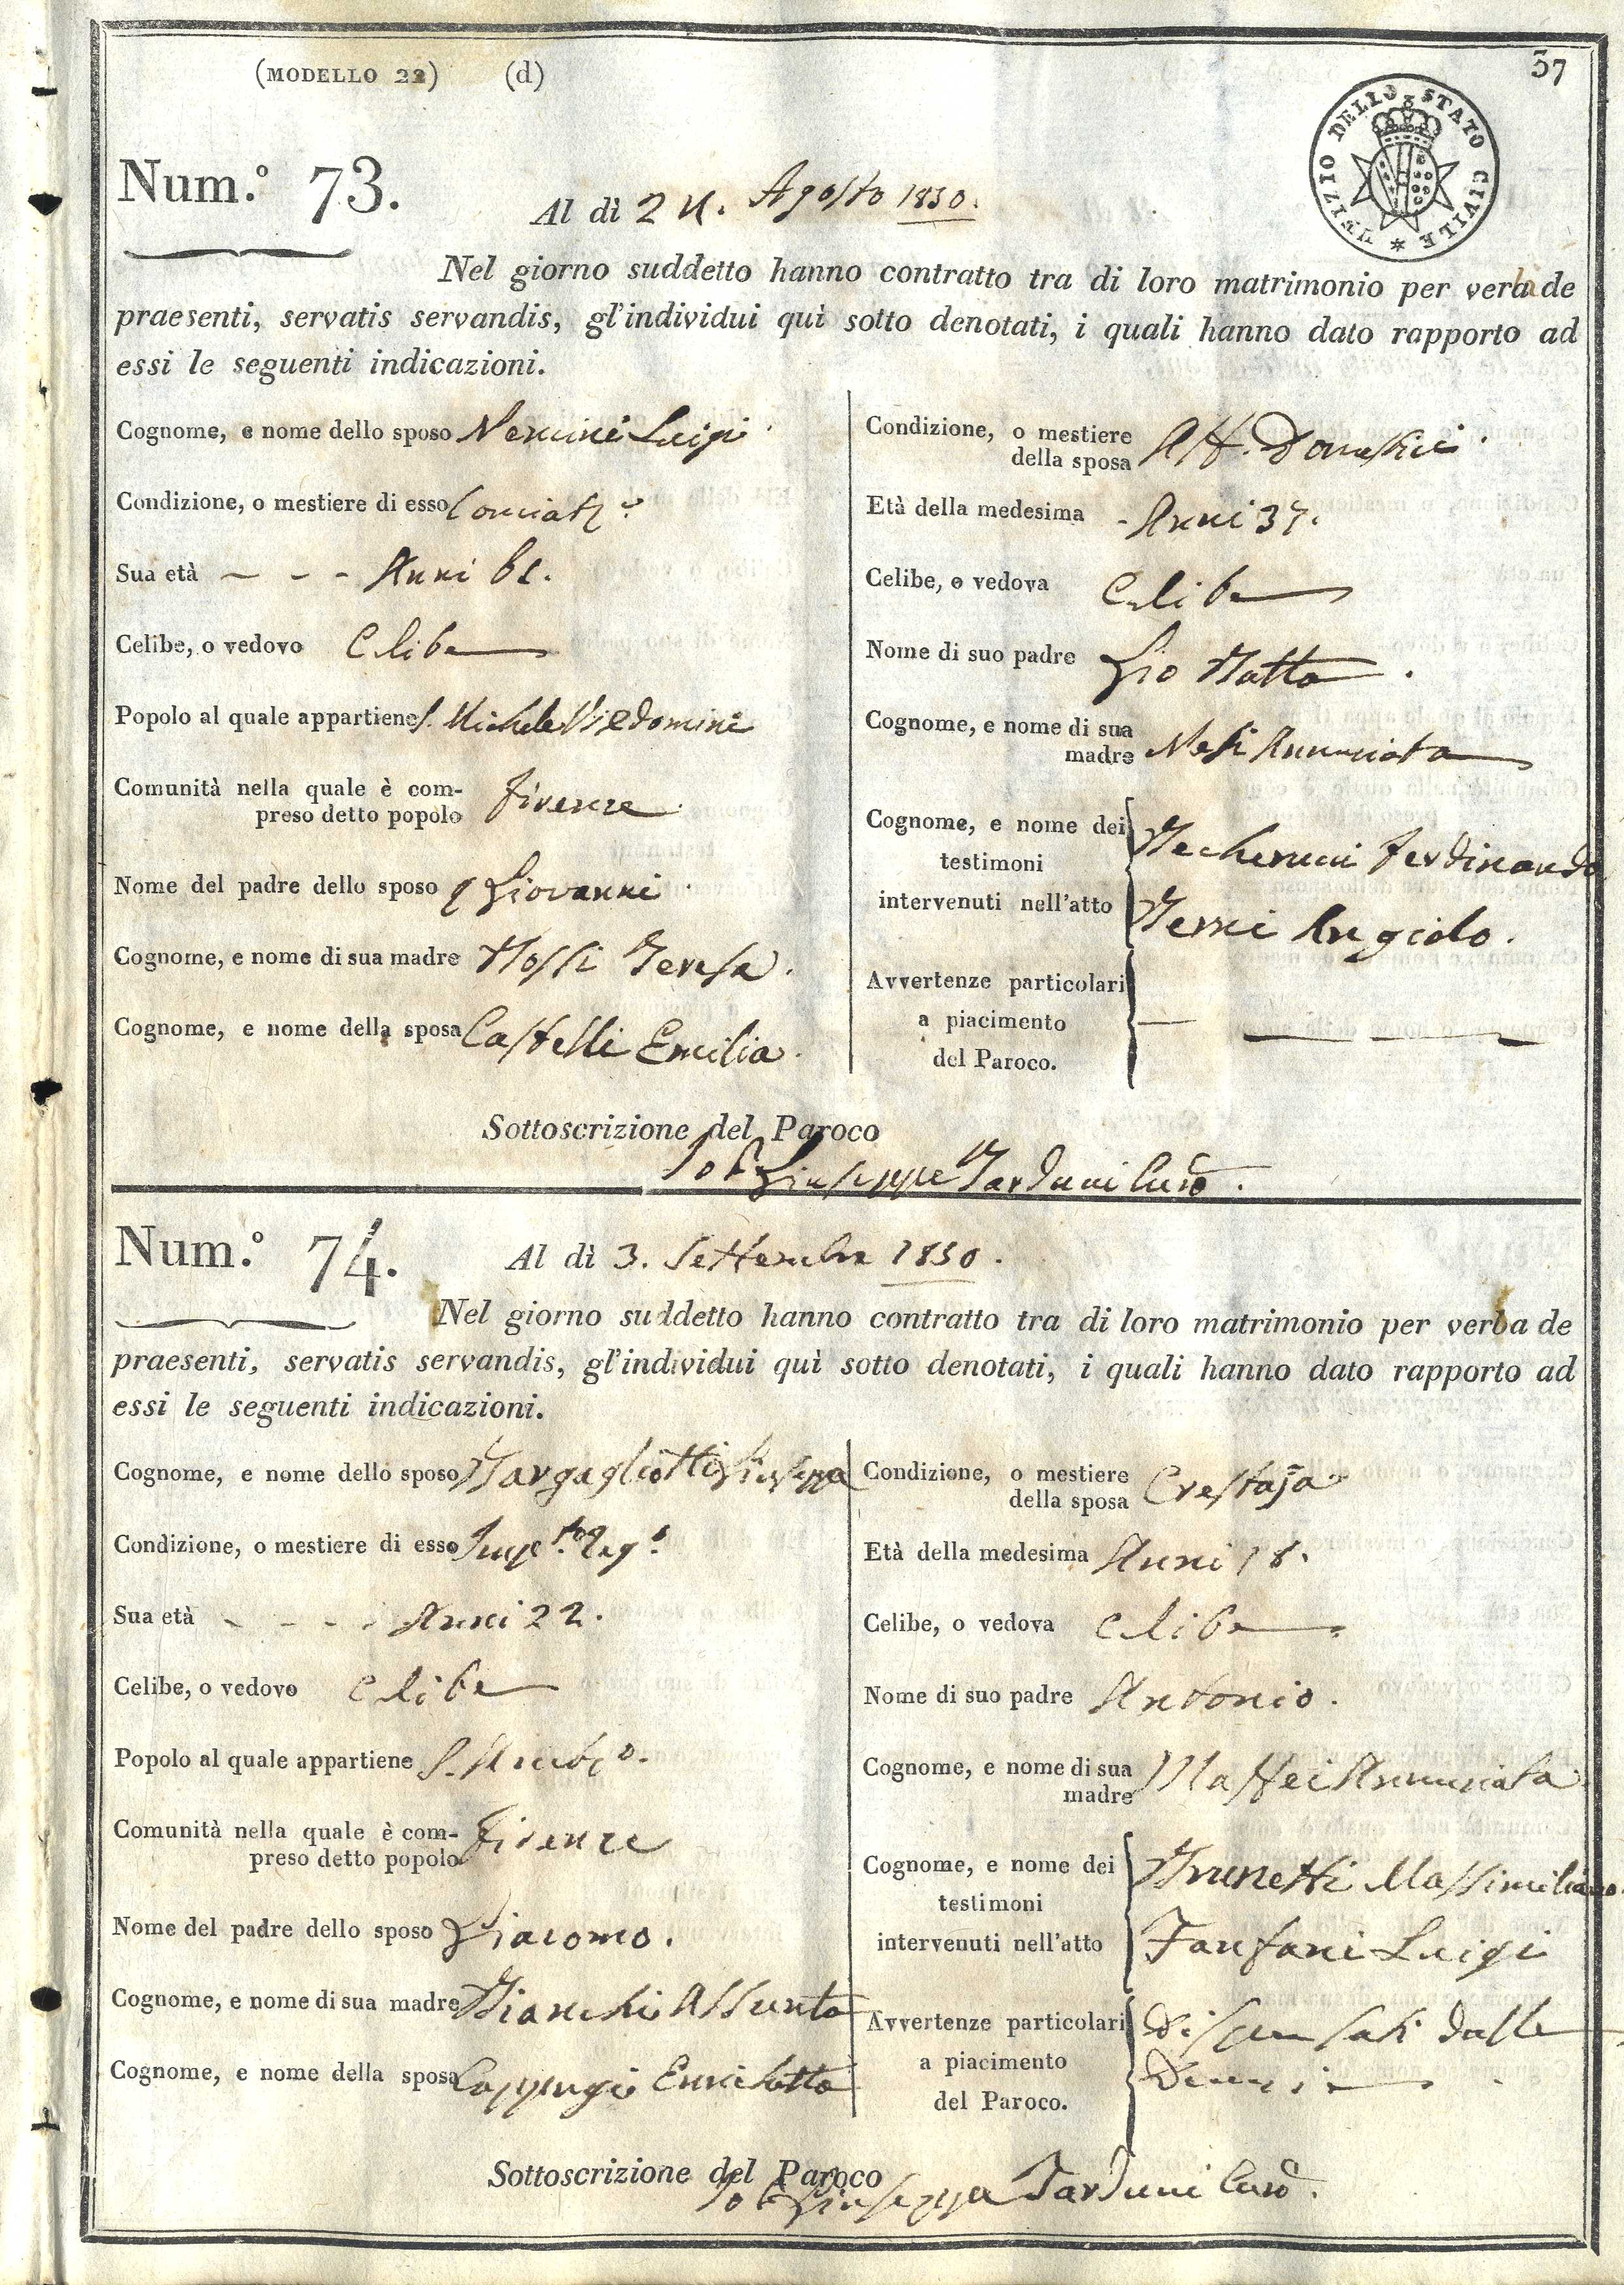 (MODELLO 22) (d)
37
UFIZIO DELLO STATO CIVILE
Num.º 73.
Al dì 24. Agosto 1830.
Nel giorno suddetto hanno contratto tra di loro matrimonio per verba de
praesenti, servatis servandis, gl'individui quì sotto denotati, i quali hanno dato rapporto ad
essi le seguenti indicazioni.
Cognome, e nome dello sposo Luigi
Condizione, o mestiere di esso
Sua età - - - Anni
Celibe, o vedovo Celibe
Popolo al quale appartiene S. Michele Visdomini
Comunità nella quale è com-
preso detto popolo Firenze
Nome del padre dello sposo Giovanni
Cognome, e nome di sua madre Teresa.
Cognome, e nome della sposa Castelli Emilia.
Condizione, o mestiere
della sposa Att. Domestici
Età della medesima Anni 37.
Celibe, o vedova Celibe
Nome di suo padre Gio Batta.
Cognome, e nome di sua
madre Annunziata
Cognome, e nome dei
testimoni
intervenuti nell'atto
Ferdinando
Angiolo.
Avvertenze particolari
a piacimento
del Paroco.
Sottoscrizione del Paroco
Io P. Giuseppe Tarduni Curo.
Num.º 74.
Al dì 3. Settembre 1830.
Nel giorno suddetto hanno contratto tra di loro matrimonio per verba de
praesenti, servatis servandis, gl'individui quì sotto denotati, i quali hanno dato rapporto ad
essi le seguenti indicazioni.
Cognome, e nome dello sposo Bargagliotti Giuseppe
Condizione, o mestiere di esso
Sua età - - - Anni 22.
Celibe, o vedovo Celibe
Popolo al quale appartiene S. Ambro.
Comunità nella quale è com-
preso detto popolo Firenze
Nome del padre dello sposo Giacomo.
Cognome, e nome di sua madre Bianchi Assunta
Cognome, e nome della sposa Enrichetta
Condizione, o mestiere
della sposa Crestaja
Età della medesima Anni 18.
Celibe, o vedova Celibe
Nome di suo padre Antonio.
Cognome, e nome di sua
madre Maffei Annunziata
Cognome, e nome dei
testimoni
intervenuti nell'atto
Brunetti Massimiliano
Fanfani Luigi
Avvertenze particolari
a piacimento
del Paroco.
Dispensati dalle
Denunzie
Sottoscrizione del Paroco
Io P. Giuseppe Tarduni Curo.